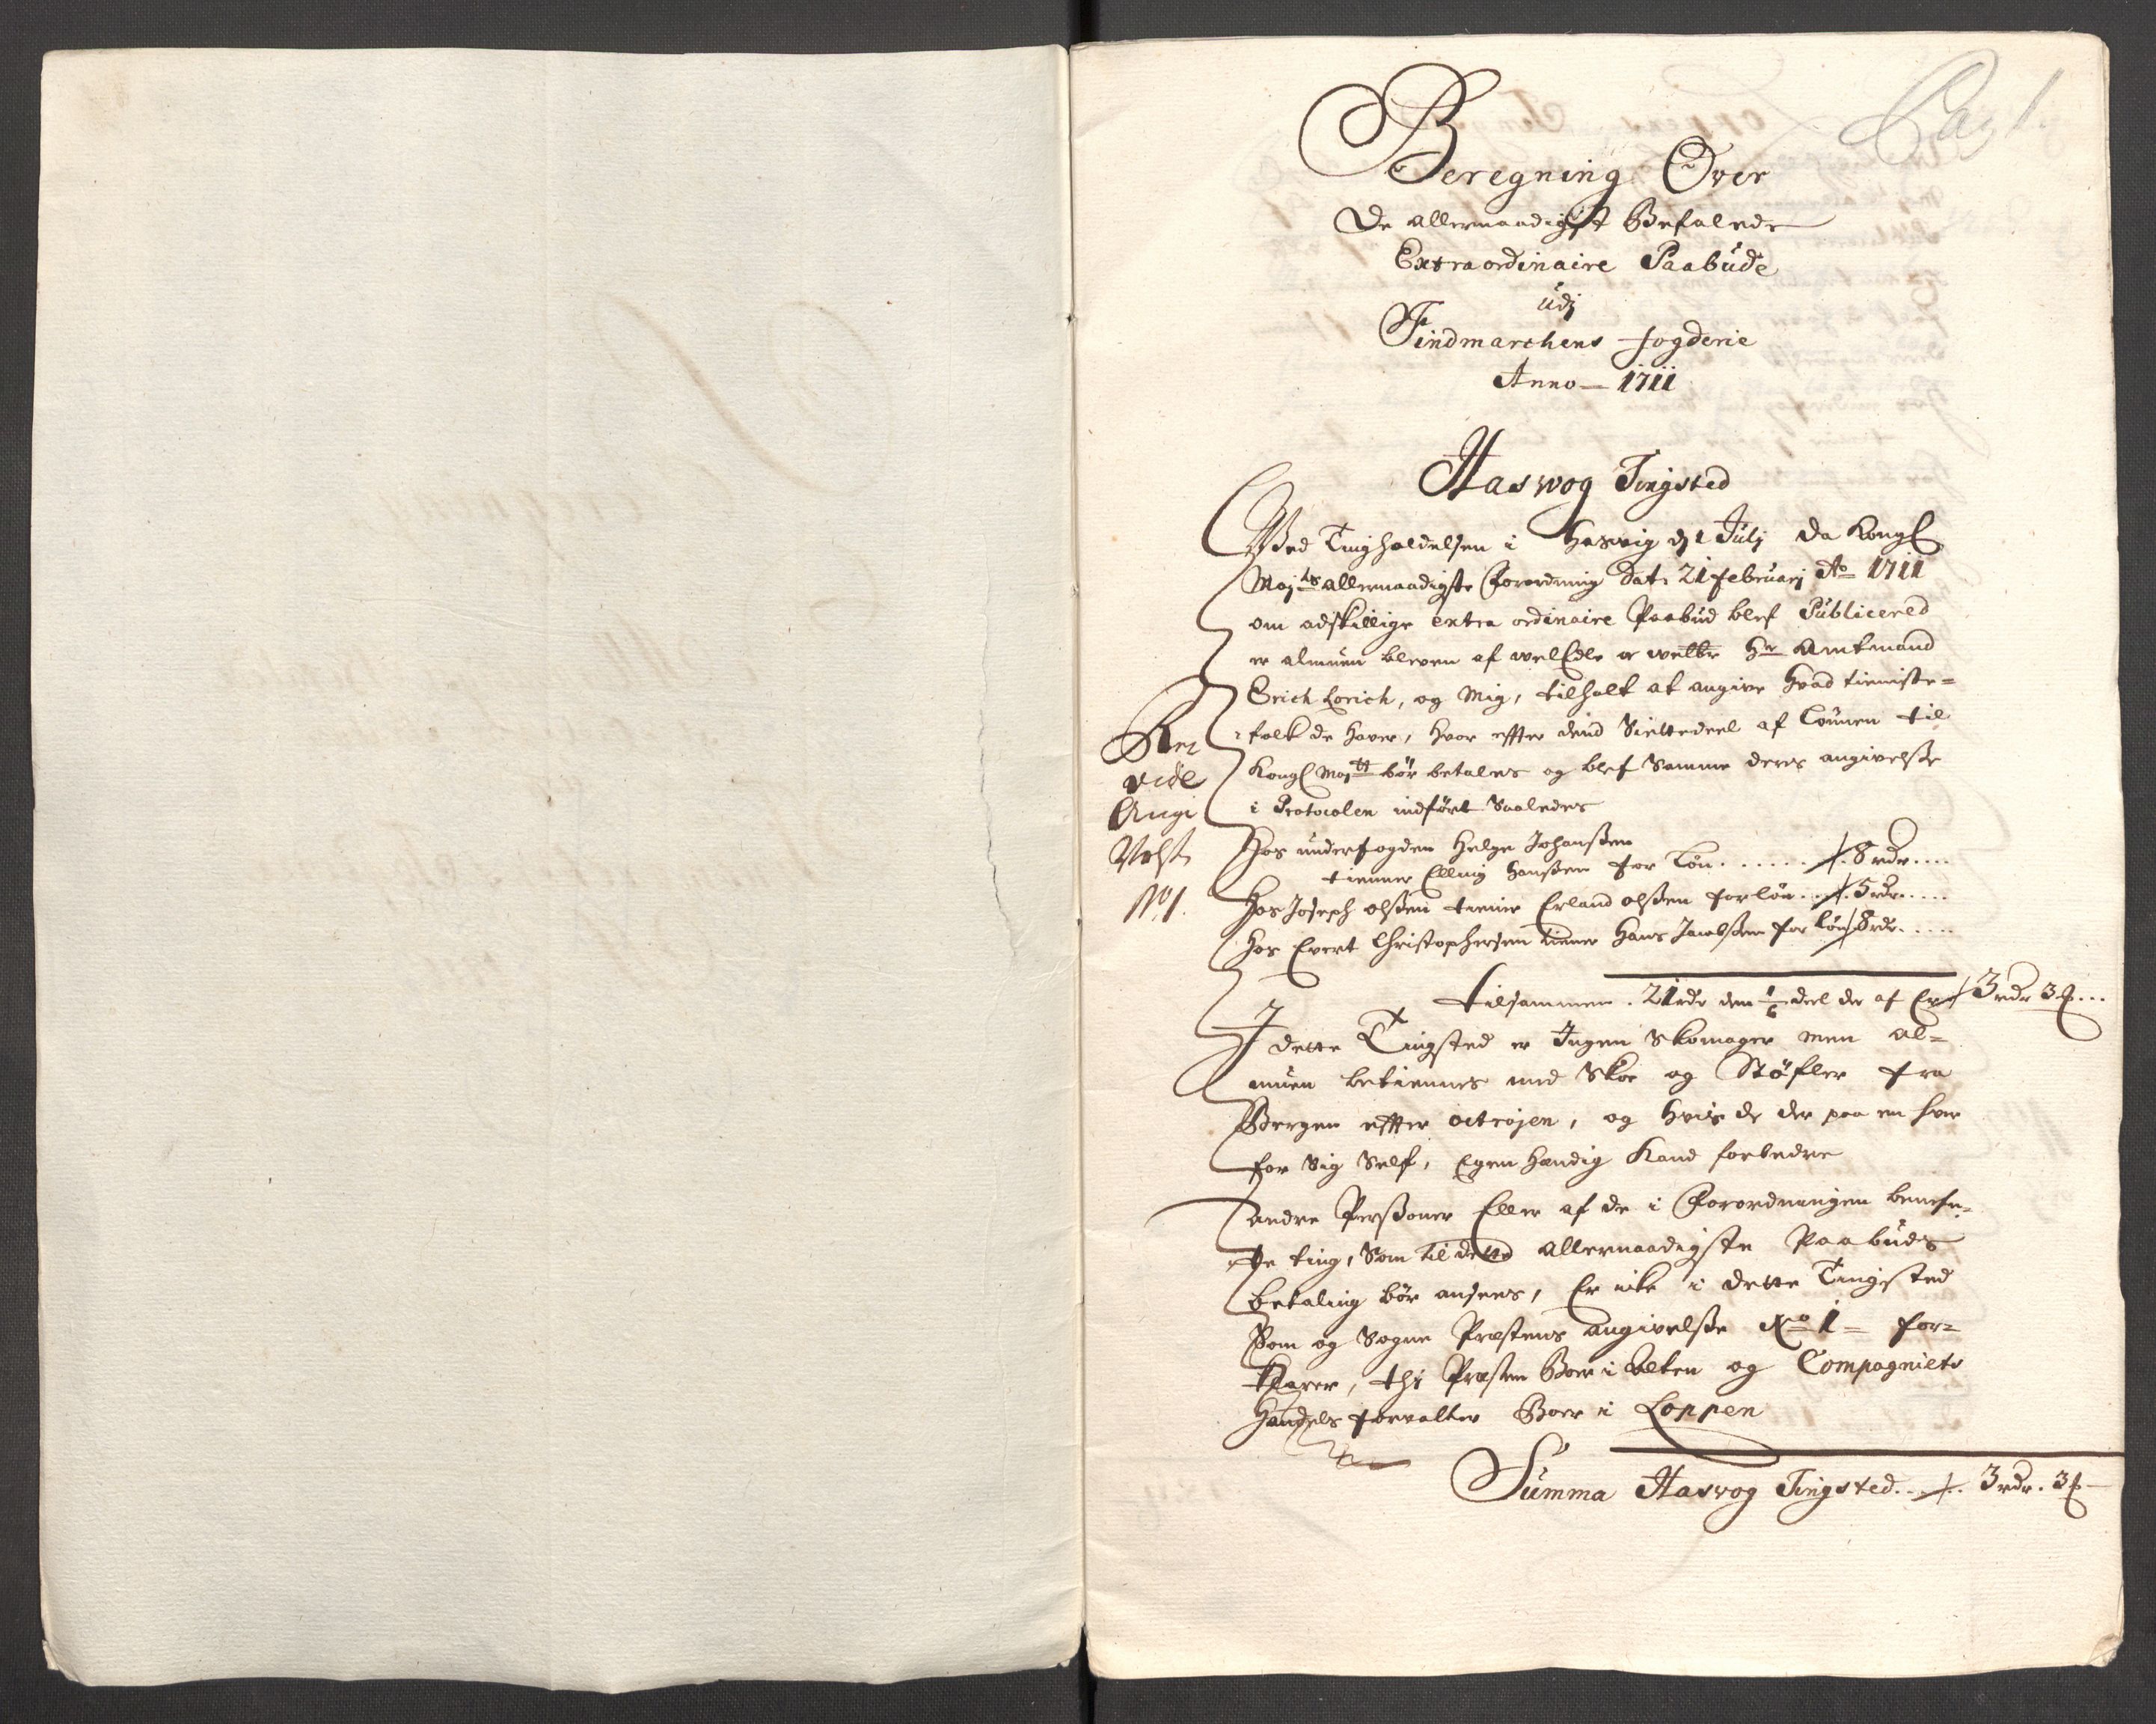 Pag 1.
Beregning Over
De allernaadigst Befalede
Extraordinaire Paabude
udj
Findmarchens fogderie
Anno 1711
Haswog Tingsted
Ved Tingholdelsen i Hasvig d 1 Julj da Kongl
Majts allernaadigste Forordning dat. 21 Februarj Ao 1711
om adskillige extra ordinaire Paabud blef Publicered
er almuen bleven af welEdle oc welbr Hr Amtmand
Erich Lorich, og Mig, tilholt at angive hvad tieniste=
folk de haver, hvor effter dend Siettedeel af Lønnen til
Kongl Majtt bør betales og blef Samme deres angivelse
i Protocolen indført Saaledes
vide
Angi
Velse
No 1.
Hos underfogden Helge Johanßen
tienner Elling Hanßen for Løn 8 rdr
Hos Joseph olßen tienner Erland olßen for løn 5 rdr
Hos Evert Christophersen tienner Hans Jacobßen for løn 8 rdr
tilsammen 21 rdr den 1/6 deel der af Er 3 rdr 3 ß
I dette Tingsted er Ingen Skomager men al=
muen betiennes med Skoe og Støfler fra
Bergen effter octrojen, og hvis de der paa en hver
for Sig Self, Egenhændig Kand forbedre
andre Perßoner Eller af de i Forordningen benefn=
te ting, Som til dette allernaadigste Paabuds
betaling bør ansees, Er icke i dette Tingsted
Som og Sogne Præstens angivelße No 1 for=
klarer, thi Præsten Boer i Alten og Compagniets
Handels forvalter Boer i Loppen
Summa Haswog Tingsted 3 rdr. 3 ß